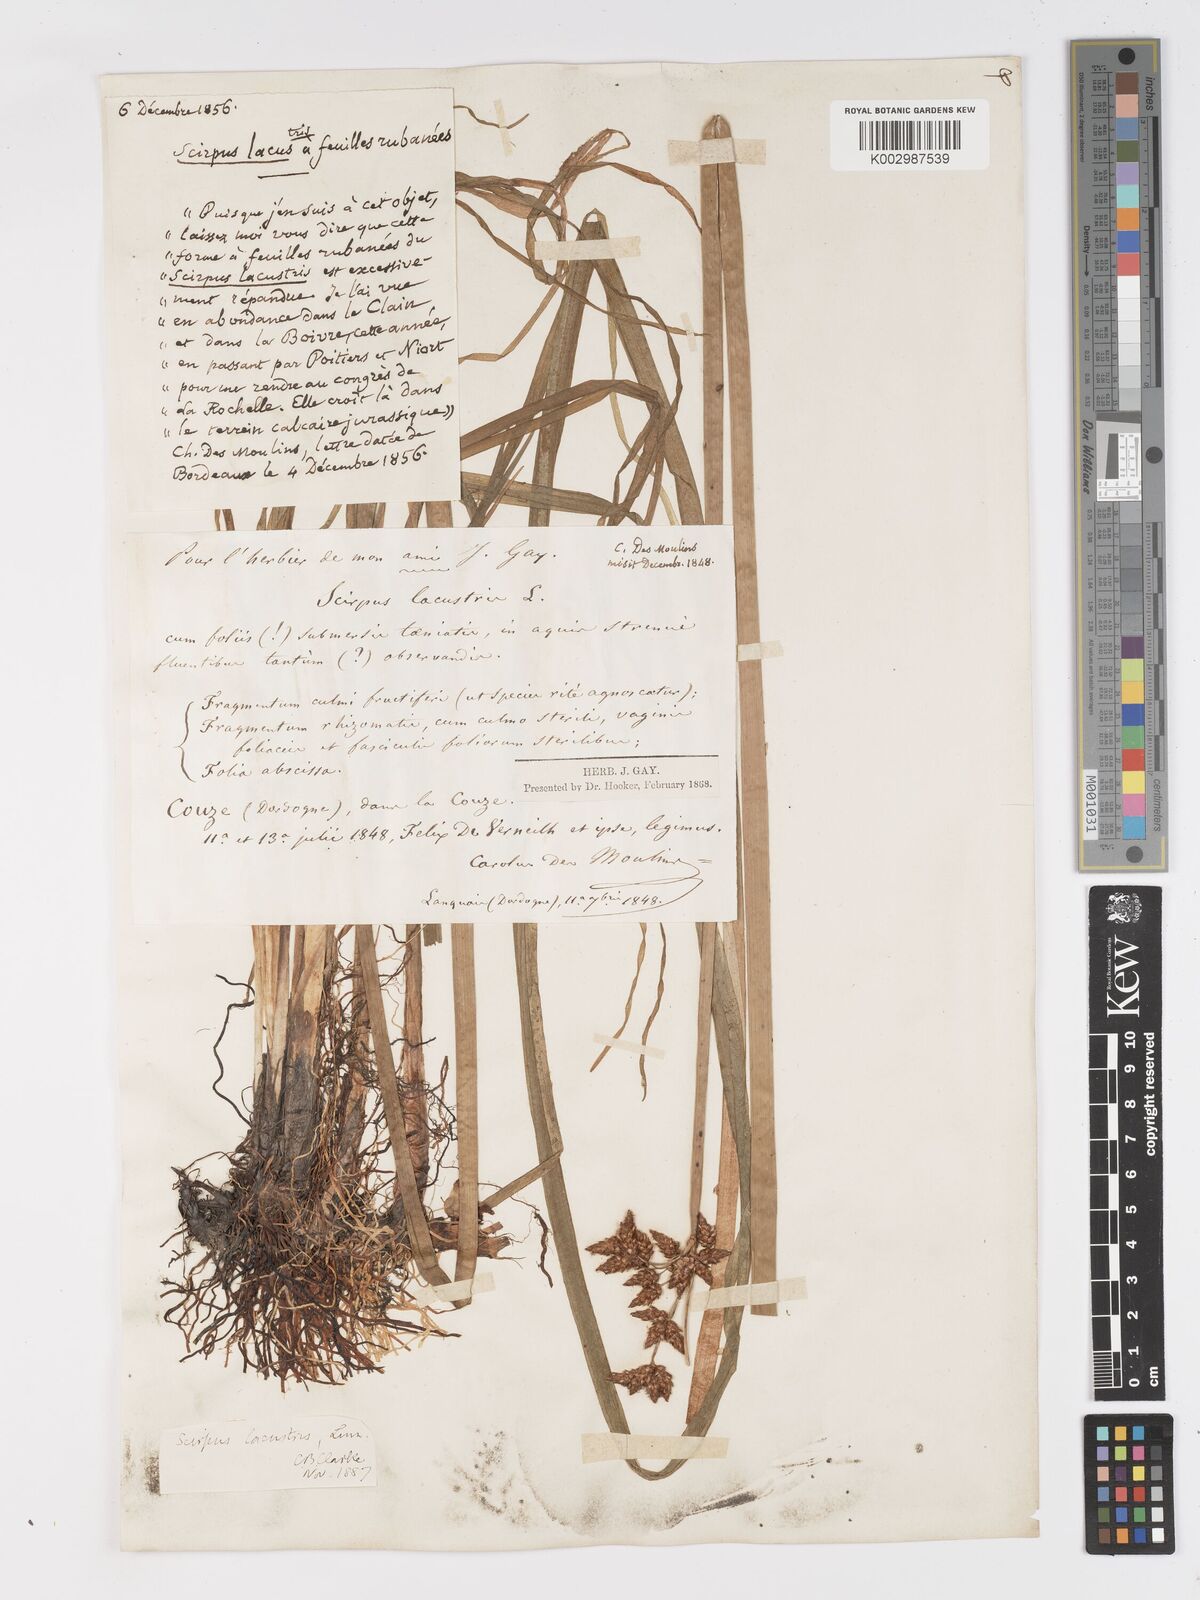 6 Décembre 1856.
Scirpus lacustris à feuilles rubanées
" Puisque j'en suis à cet objet,
" laissez moi vous dire que cette
" forme à feuilles rubanées du
" Scirpus lacustris est excessive-
" ment répandue. Je l'ai vue
" en abondance dans le Clain
" et dans la Boivre, cette année,
" en passant par Poitiers et Niort
" pour me rendre au congrès de
" La Rochelle. Elle croît là dans
" le terrein calcaire jurassique"
Ch. Des Moulins, lettre datée de
Bordeaux le 4 Décembre 1856.
ROYAL BOTANIC GARDENS KEW
K002987539
Pour l'herbier de mon ami J. Gay.
C. Des Moulins
misit Decembr. 1848.
Scirpus lacustris L.
cum foliis (!) submersis tæniatis, in aquis strenuè
fluentibus tantùm (?) observandis.
Fragmentum culmi fructiferi (ut species ritè agnoscatur);
Fragmentum rhizomatis, cum culmo sterili, vaginis
foliaceis et fasciculis foliorum sterilibus;
Folia abscissa.
HERB. J. GAY.
Presented by Dr. Hooker, February 1868.
Couze (Dordogne), dans la Couze.
11a et 13a julii 1848, Felix De Verneilh et ipse, legimus.
Carolus Des Moulins =
Lanquais (Dordogne), 11a 7bris 1848.
Scirpus lacustris, Linn.
CBClarke
Nov. 1887
8
inches
centimeters
Density
Don Williams
M001031
Kew
Royal Botanic Gardens
copyright reserved
0 1 2 3 4 5 6 7 8 9 10
cm